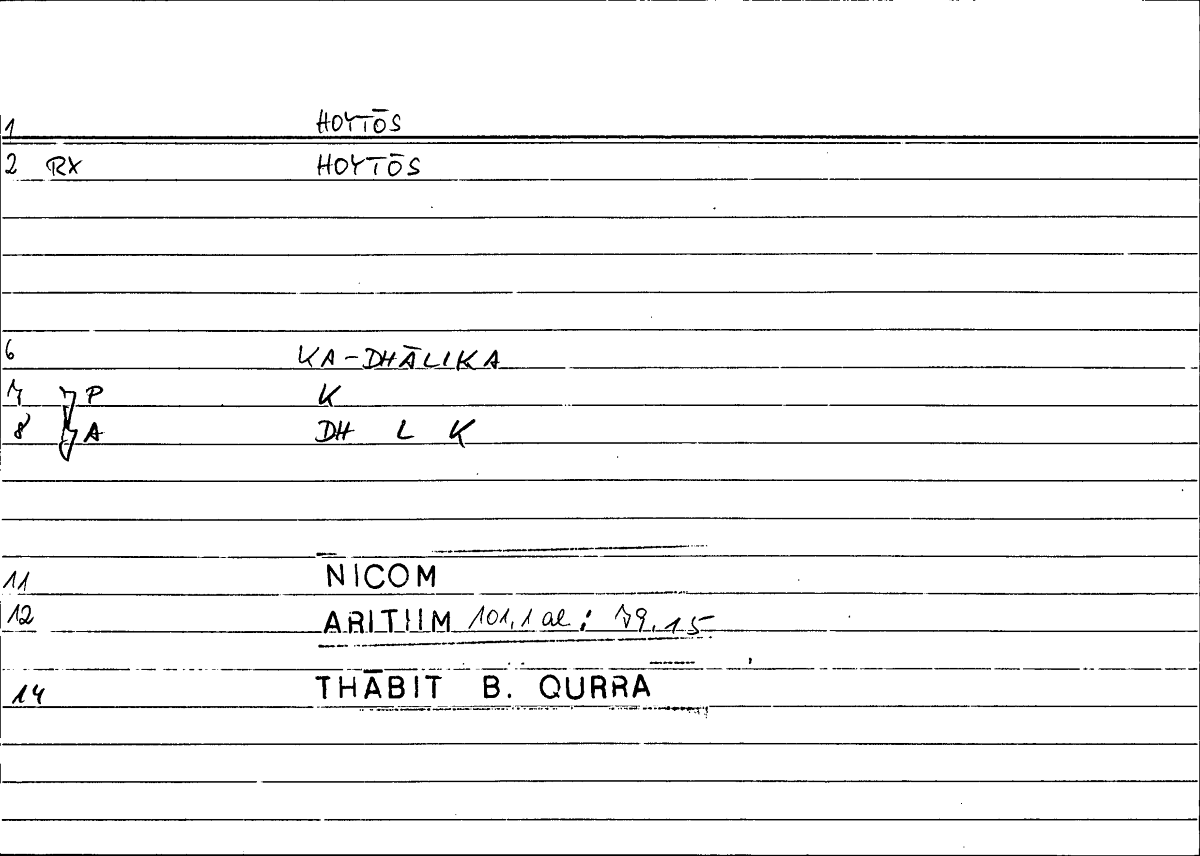 1 HOYTŌS
2 RX HOYTŌS
6 KA-DHĀLIKA
7 P K
8 A DH L K
11 NICOM
12 ARITHM 101,1 al : 79.15
14 THĀBIT B. QURRA